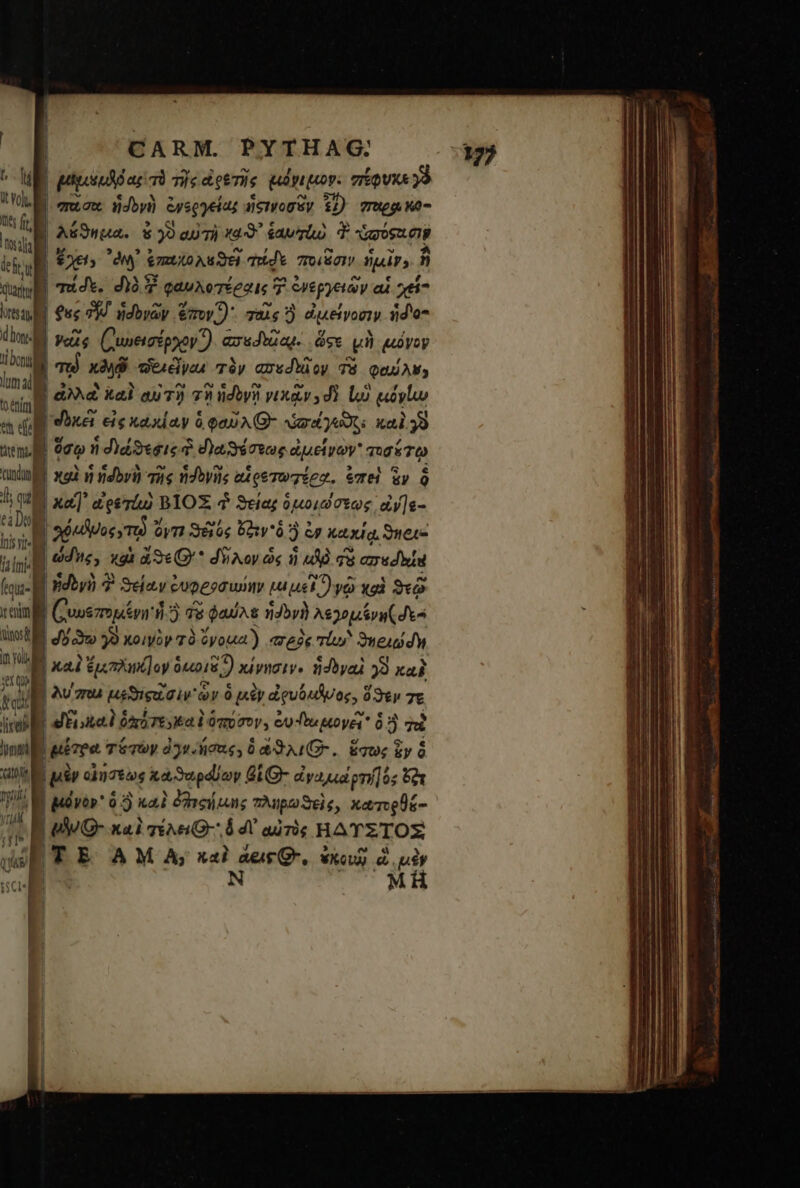 CARM. PYTHAG. 177
μιμουμένας τὸ τῆς ἀρετῆς μόνιμον. πέφυκε γὰ
πᾶσα ἡδονὴ ἐνεργείας ἡστινοσοῦν εἶ) παρακο-
λούθημα. οὐ γὰ αὐτὴ καθ' ἑαυτὴν τ̃ ὑπόστασιν
ἔχει, ἀλλ' ἐπακολουθεῖ τάδε ποιοῦσιν ἡμῖν, ἢ
τάδε. διὸ τ̃ φαυλοτέραις τ̃ ἐνεργειῶν αἱ χεί-
ρους τῶν ἡδονῶν ἕπον)· ταῖς ᾗ ἀμείνοσιν ἡδο-
ναῖς συνεισέρχον) σπουδαῖαι. ὥςε μὴ μόνον
τῷ καλῷ περιεῖναι τὸν σπουδαῖον τοῦ φαύλου,
ἀλλὰ καὶ αὐτῇ τῇ ἡδονῇ νικᾶν, δι' ἣν μόνην
δοκεῖ εἰς κακίαν ὁ φαῦλΘ ὑπάγεσθαι· καὶ γὰ
ὅσῳ ἡ διάθεσις τ̃ διαθέσεως ἀμείνων· τοσούτῳ
καὶ ἡ ἡδονὴ τῆς ἡδονῆς αἱρετωτέρα. ἐπεὶ οὖν ὁ
κατ' ἀρετὴν ΒΙΟΣ τ̃ θείας ὁμοιώσεως ἀντε-
χόμενος, τῷ ὄντι θεῖός ἐστιν· ὁ ᾗ ἐν κακίᾳ θηρι-
ώδης, καὶ ἄθεΘ· δῆλον ὡς ἡ μὲν τοῦ σπουδαίου
ἡδονὴ τ̃ θείαν εὐφροσύνην μιμεῖ) νῷ καὶ θεῷ
συνεπομένη· ἡ ᾗ τοῦ φαύλου ἡδονὴ λεγομένη (δε-
δόσθω γὰ κοινὸν τὸ ὄνομα) πρὸς τὴν θηριώδη
καὶ ἔμπληκτον ὁμοιοῦ) κίνησιν. ἡδοναὶ γὰ καὶ
λύπαι μεθιστῶσιν· ὧν ὁ μὲν ἀρυόμενος, ὅθεν τε
δεῖ, καὶ ὁπότε, καὶ ὁπόσον, εὐδαιμονεῖ· ὁ ᾗ τὰ
μέτρα τούτων ἀγνοήσας, ὁ ἄθλιΘ. οὕτως οὖν ὁ
μὲν οἰήσεως καθαρεύων βίΘ ἀναμάρτητός ἐστι
μόνον· ὁ ᾗ καὶ ἐπιστήμης πληρωθείς, κατορθού-
μενΘ καὶ τέλειΘ· ὁ δ' αὐτὸς ἩΔΥΣΤΟΣ
ΤΕ ἈΜΑ, καὶ ἄριςΘ. οὐκοῦν ἃ μὲν
N ΜΗ